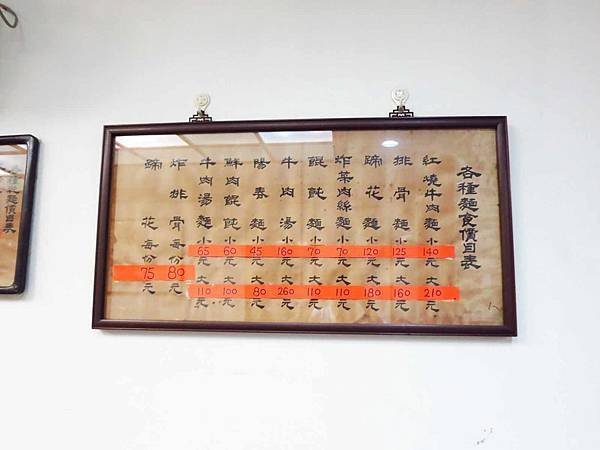 各種麵食價目表
紅燒牛肉麵 小140元 大210元
排骨麵 小125元 大160元
蹄花麵 小120元 大180元
炸菜肉絲麵 小70元 大110元
餛飩麵 小70元 大110元
牛肉湯 小160元 大260元
陽春麵 小45元 大80元
鮮肉餛飩 小60元 大100元
牛肉湯麵 小65元 大110元
炸排骨 每份80元
蹄花 每份75元
各種麵食價目表